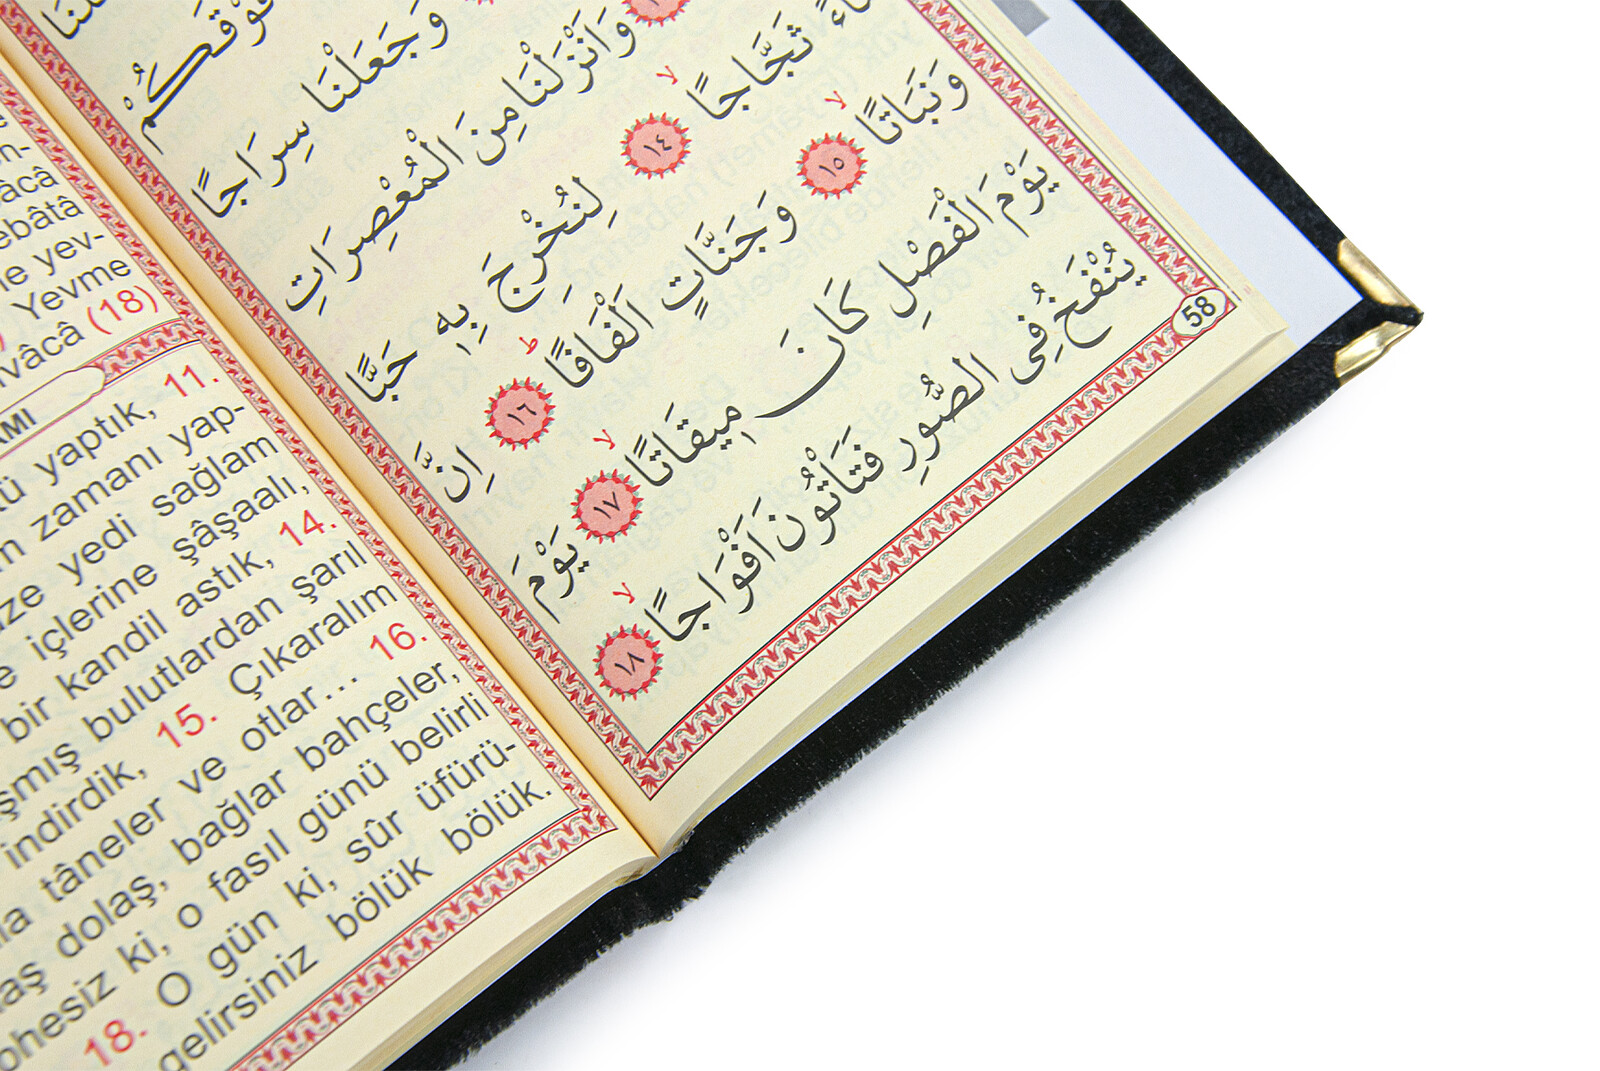 فَوْقَكُمْ
وَجَعَلْنَا سِرَاجًا
وَاَنْزَلْنَا مِنَ الْمُعْصِرَاتِ
ثَجَّاجًا لا ١٤ لِنُخْرِجَ بِه۪ حَبًّا
وَنَبَاتًا لا ١٥ وَجَنَّاتٍ اَلْفَافًا ط ١٦ اِنَّ
يَوْمَ الْفَصْلِ كَانَ م۪يقَاتًا لا ١٧ يَوْمَ
يُنْفَخُ فِى الصُّورِ فَتَأْتُونَ اَفْوَاجًا لا ١٨
58
âcâ
ebâtâ
le yev-
Yevme
vâcâ (18)
AMI
yaptık, 11.
n zamanı yap-
ize yedi sağlam
e içlerine şâşaalı,
bir kandil astık, 14.
şmış bulutlardan şarıl
indirdik, 15. Çıkaralım
la tâneler ve otlar... 16.
aş dolaş, bağlar bahçeler,
phesiz ki, o fasıl günü belirli
18. O gün ki, sûr üfürü-
gelirsiniz bölük bölük.